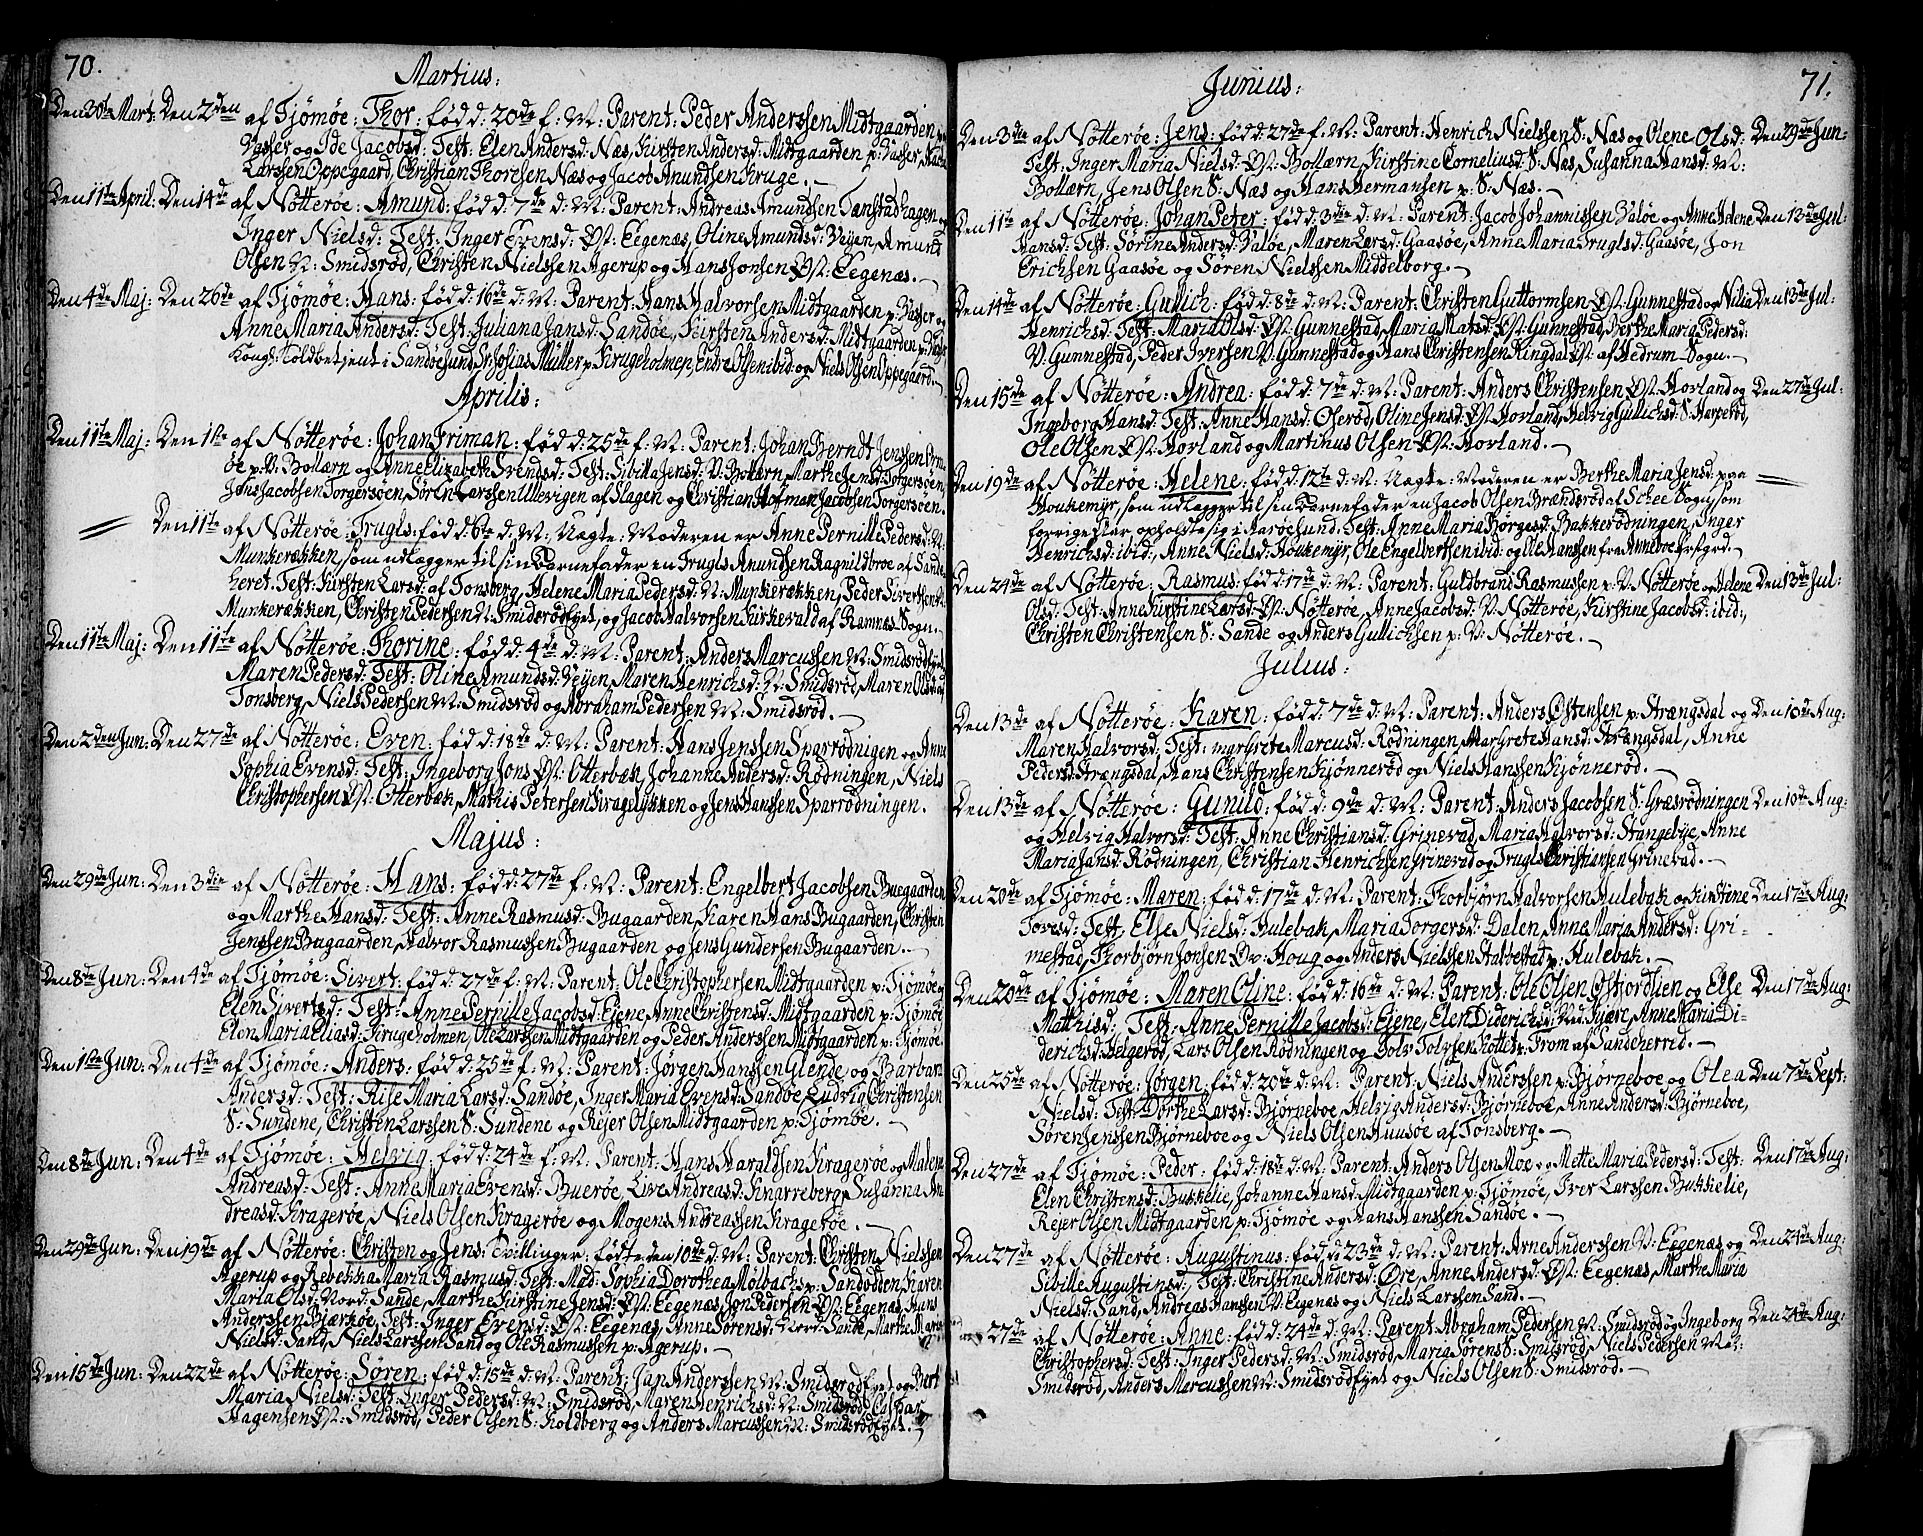 70.
Martius:
Den 30te Mart: Den 2den af Tjömöe: Thor: född: 20de f: M: Parent: Peder Anderssen Midtgaarden p:
Vasser og Ide Jacobsd: Test: Elen Andersd: Næs, Kirsten Andersd: Midtgaarden p: Vasser,
Larssen Oppegaard, Christian Thoresen Næs og Jacob Amundsen Kruge. —
Den 11te April: Den 14de af Nötteröe: Amund: född: 7de d: M: Parent: Andreas Amundsen Tanstadhagen og
Inger Nielsd: Test: Inger Evensd: Øst: Eegenæs, Oline Amundsd: Vejen, Amund
Olsen N: Smidsröd, Christen Nielssen Agerup og Hans Jonsen Øst: Eegenæs. —
Den 4de Maj: Den 26de af Tjömöe: Hans: född: 16de d: M: Parent: Hans Halvorsen Midtgaarden p: Vasser og
Anne Maria Andersd: Test: Juliana Jansd: Sandöe, Kirsten Andersd: Midtgaarden p: Vasser
Kongl: Toldbetjent i Sandösund Sr: Josias Müller p: Krugeholmen, Endre Olsen ibid: og Niels Olsen Oppegaard. —
Aprilis:
Den 11te Maj: Den 1ste af Nötteröe: Johan Friman: född: 25de f: M: Parent: Johan Berndt Jenssen
öe p: V: Bollærn og Anne Elizabeth Svendsd: Test: Sibilla Jensd: V: Bollærn, Marthe Jensd: Torgersöen,
Jens Jacobsen Torgersöen, Sören Larssen Ullevigen af Slagen og Christian Hofman Jacobsen Torgersöen.
Den 11te af Nötteröe: Trugls: född: 6te d: M: Uægte: Moderen er Anne Pernille Pedersd: N:
Munkerækken, som udlægger til sin Barnefader en Trugls Anundsen Ragnildbroe af Sande-
heret: Test: Kirsten Larsd: af Tonsberg, Helene Maria Pedersd: N: Munkerækken, Peder Sivertsen N:
Munkerækken, Christen Pedersen N: Smidsröd Eyet, og Jacob Halvorsen Kirkevald af Ramnæs Sogn. —
Den 11te Maj: Den 11te af Nötteröe: Thorine: född: 4de d: M: Parent: Anders Marcussen M: Smidsrödeyet,
Maren Pedersd: Test: Oline Amundsd: Vejen, Maren Henrichsd: N: Smidsröd, Maren Olsd: af
Tonsberg, Niels Pedersen M: Smidsröd og Abraham Pedersen M: Smidsröd. —
Den 2den Jun: Den 27de af Nötteröe: Even: född: 18de d: M: Parent: Hans Jenssen Sparrödnigen og Anne
Sophia Evensd: Test: Ingeborg Jons Øst: Otterbæk, Johanne Andersd: Rödningen, Niels
Christophersen Øst: Otterbæk, Mathis Petersen Kragelykken og Jens Hanssen Sparrödningen.
Majus:
Den 29de Jun: Den 3die af Nötteröe: Hans: född: 27de f: M: Parent: Engelbert Jacobsen Buegaarden
og Marthe Hansd: Test: Anne Rasmusd: Bugaarden, Karen Hans Bugaarden, Christen
Jenssen Bugaarden, Halvor Rasmussen Bugaarden og Jens Gundersen Bugaarden. —
Den 8de Jun: Den 4de af Tjömöe: Sivert: född: 27de f: M: Parent: Ole Christophersen Midtgaarden p: Tjömöe og
Elen Sivertsd: Test: Anne Pernille Jacobsd: Ejene, Anne Christensd: Midtgaarden p: Tjömöe
Elen Maria Eliasd: Krugeholmen, Ole Larssen Midtgaarden og Peder Anderssen Midtgaarden p: Tjömöe.
Den 1ste Jun: Den 4de af Tjömöe: Anders: född: 25de f: M: Parent: Jörgen Hanssen Glende og Barbara
Andersd: Test: Rise Maria Larsd: Sandöe, Inger Maria Evensd: Sandöe, Ludvig Christensen
S: Sundene, Christen Larssen S: Sundene og Rejer Olsen Midtgaarden p: Tjömöe. —
Den 8de Jun: Den 4de af Tjömöe: Helvig: född: 24de f: M: Parent: Hans Haraldsen Krageröe og Malene
Andreasd: Test: Anne Maria Evensd: Bueröe, Live Andreasd: Knarreberg, Susanna An-
dreasd: Krageröe, Niels Olsen Krageröe og Mogens Andreassen Krageröe. —
Den 29de Jun: Den 19de af Nötteröe: Christen og Jens: Tvillinger: födte den 10de d: M: Parent: Christen Nielssen
Agerup og Rebekka Maria Rasmusd: Test: Mad: Sophia Dorothea Mölbachs p: Sandodden, Karen
Maria Olsd: Nord: Sande, Marthe Kirstine Jensd: Øst: Eegenæs, Jon Pedersen Øst: Eegenæs, Hans
Anderssen Bjærköe, Test: Inger Evensd: Øst: Eegenæs, Anne Sörensd: Nord: Sande, Marthe Maria
Nielsd: Sand, Niels Larssen Sand og Ole Rasmussen p: Agerup. —
Den 15de Jun: Den 22de af Nötteröe: Sören: född: 15de d: M: Parent: Jan Anderssen M: Smidsröd Eyet og Berte
Maria Nielsd: Test: Inger Pedersd: M: Smidsröd, Maren Henrichsd: N: Smidsröd, Caspar
Hagensen Øst: Smidsröd, Peder Olsen S: Holdberg og Anders Marcussen M: Smidsröd Eyet. —
71.
Junius:
Den 3die af Nötteröe: Jens: född: 27de f: M: Parent: Henrich Nielssen S: Næs og Olene Olsd: Den 29de Jun:
Test: Inger Maria Nielsd: Øst: Bollærn, Kirstine Corneliusd: S: Næs, Susanna Hansd: M:
Bollærn, Jens Olsen S: Næs og Hans Hermansen p: S: Næs. —
Den 11te af Nötteröe: Johan Peter: född: 3die d: M: Parent: Jacob Johannissen Valöe og Anne Helene Den 13de Jul:
Hansd: Test: Sörine Andersd: Valöe, Maren Larsd: Gaasöe, Anne Maria Truglsd: Gaasöe, Jon
Erichsen Gaasöe og Sören Nielssen Middelborg. —
Den 14de af Nötteröe: Gullich: född: 8de d: M: Parent: Christen Guttormsen Øst: Gunnestad og Nilia Den 13de Jul:
Henrichsd: Test: Maria Olsd: Øst: Gunnestad, Maria Matsd: Øst: Gunnestad, Berthe Maria Pedersd:
V: Gunnestad, Peder Iversen V: Gunnestad og Hans Christensen Ringdal Øst: af Hedrum Sogn. —
Den 15de af Nötteröe: Andrea: född: 7de d: M: Parent: Anders Christensen Øst: Hovland og Den 27de Jul:
Ingeborg Hansd: Test: Anne Hansd: Oleröd, Oline Jensd: Øst: Hovland, Helvig Gullichsd: S: Harperöd,
Ole Olsen Øst: Hovland og Martinus Olsen Øst: Hovland. —
Den 19de af Nötteröe: Helene: född: 12te d: M: Uægte: Moderen er Berthe Maria Jensd: paa
Houkemyr, som udlægger til sin Barnefader en Jacob Olsen Brændsröd af Schee Sogn, som
forrige Aar opholdte sig i Aaröesund. Test: Anne Maria Börgesd: Bakkerödningen, Inger
Henrichsd: ibid:, Anne Nielsd: Houkemyr, Ole Engelbertsen ibid: og Ole Hanssen fra Anneboe Prstgrd. —
Den 24de af Nötteröe: Rasmus: född: 17de d: M: Parent: Guldbrand Rasmussen p: V: Nötteröe og Helene Den 13de Jul:
Olsd: Test: Anne Kirstine Larsd: Øst: Nötteröe, Anne Jacobsd: V: Nötteröe, Kirstine Jacobsd: ibid:,
Christen Christensen S: Sande og Anders Gullichsen p: V: Nötteröe. —
Julius:
Den 13de af Nötteröe: Karen: född: 7de d: M: Parent: Anders Ostensen p: Strængsdal og Den 10de Aug:
Maren Halvorsd: Test: margrete Marcusd: Rödningen, Margrete Hansd: Strængsdal, Anne
Pedersd: Strængsdal, Hans Christensen Kjönneröd og Niels Hanssen Kjönneröd. —
Den 13de af Nötteröe: Gunild: född: 9de d: M: Parent: Anders Jacobsen S: Græsrödningen Den 10de Aug:
og Helvig Halvorsd: Test: Anne Christiansd: Grinevad, Maria Halvorsd: Stangebye, Anne
Maria Jansd: Rödningen, Christian Henrichsen Grinevad og Trugls Christiansen Grinevad. —
Den 20de af Tjömöe: Maren: född: 17de d: M: Parent: Thorbjørn Halvorsen Hulebak og Kirstine Den 17de Aug:
Toresd: Test, Else Nielsd: Hulebak, Maria Torgersd: Dalen, Anne Maria Andersd: Gri-
mestad, Thorbjørn Jonsen Øv: Houg og Anders Nielssen Stalbestad p: Hulebak. —
Den 20de af Tjömöe: Maren Oline: född: 16de d: M: Parent: Ole Olsen Ostjordlien og Else Den 17de Aug:
Matthisd: Test: Anne Pernille Jacobsd: Ejene, Elen Diderichsd: Ned: Kjære, Anne Maria Di-
derichsd: Helgeröd, Lars Olsen Rödningen og Solv Solvsen Kottet p: From af Sandeherrid. —
Den 25de af Nötteröe: Jörgen: född: 20de d: M: Parent: Niels Anderssen p: Björneboe og Olea Den 7de Sept:
Nielsd: Test: Dorthe Larsd: Björneboe, Helvig Andersd: Björneboe, Anne Andersd: Björneboe,
Sören Jenssen Björneboe og Niels Olsen Huusöe af Tonsberg. —
Den 27de af Tjömöe: Peder: född: 18de d: M: Parent: Anders Olsen Moe og Mette Maria Pedersd: Test: Den 17de Aug:
Elen Christensd: Bukkelie, Johanne Hansd: Midtgaarden p: Tjömöe, Iver Larssen Bukkelie,
Rejer Olsen Midtgaarden p: Tjömöe og Hans Hanssen Sandöe. —
Den 27de af Nötteröe: Augustinus: född: 23de d: M: Parent: Arne Anderssen V: Eegenæs og Den 24de Aug:
Sibille Augustinsd:, Test: Christine Andersd: Øre, Anne Andersd: Øst: Eegenæs, Marthe Maria
Nielsd: Sand, Andreas Hanssen V: Eegenæs og Niels Larssen Sand. —
27de af Nötteröe: Anne: född: 24de d: M: Parent: Abraham Pedersen M: Smidsröd og Ingeborg Den 24de Aug:
Christophersd: Test: Inger Pedersd: M: Smidsröd, Maria Sörens S: Smidsröd, Niels Pedersen M:
Smidsröd, Anders Marcussen M: Smidsröd Eyet og Niels Olsen S: Smidsröd. —